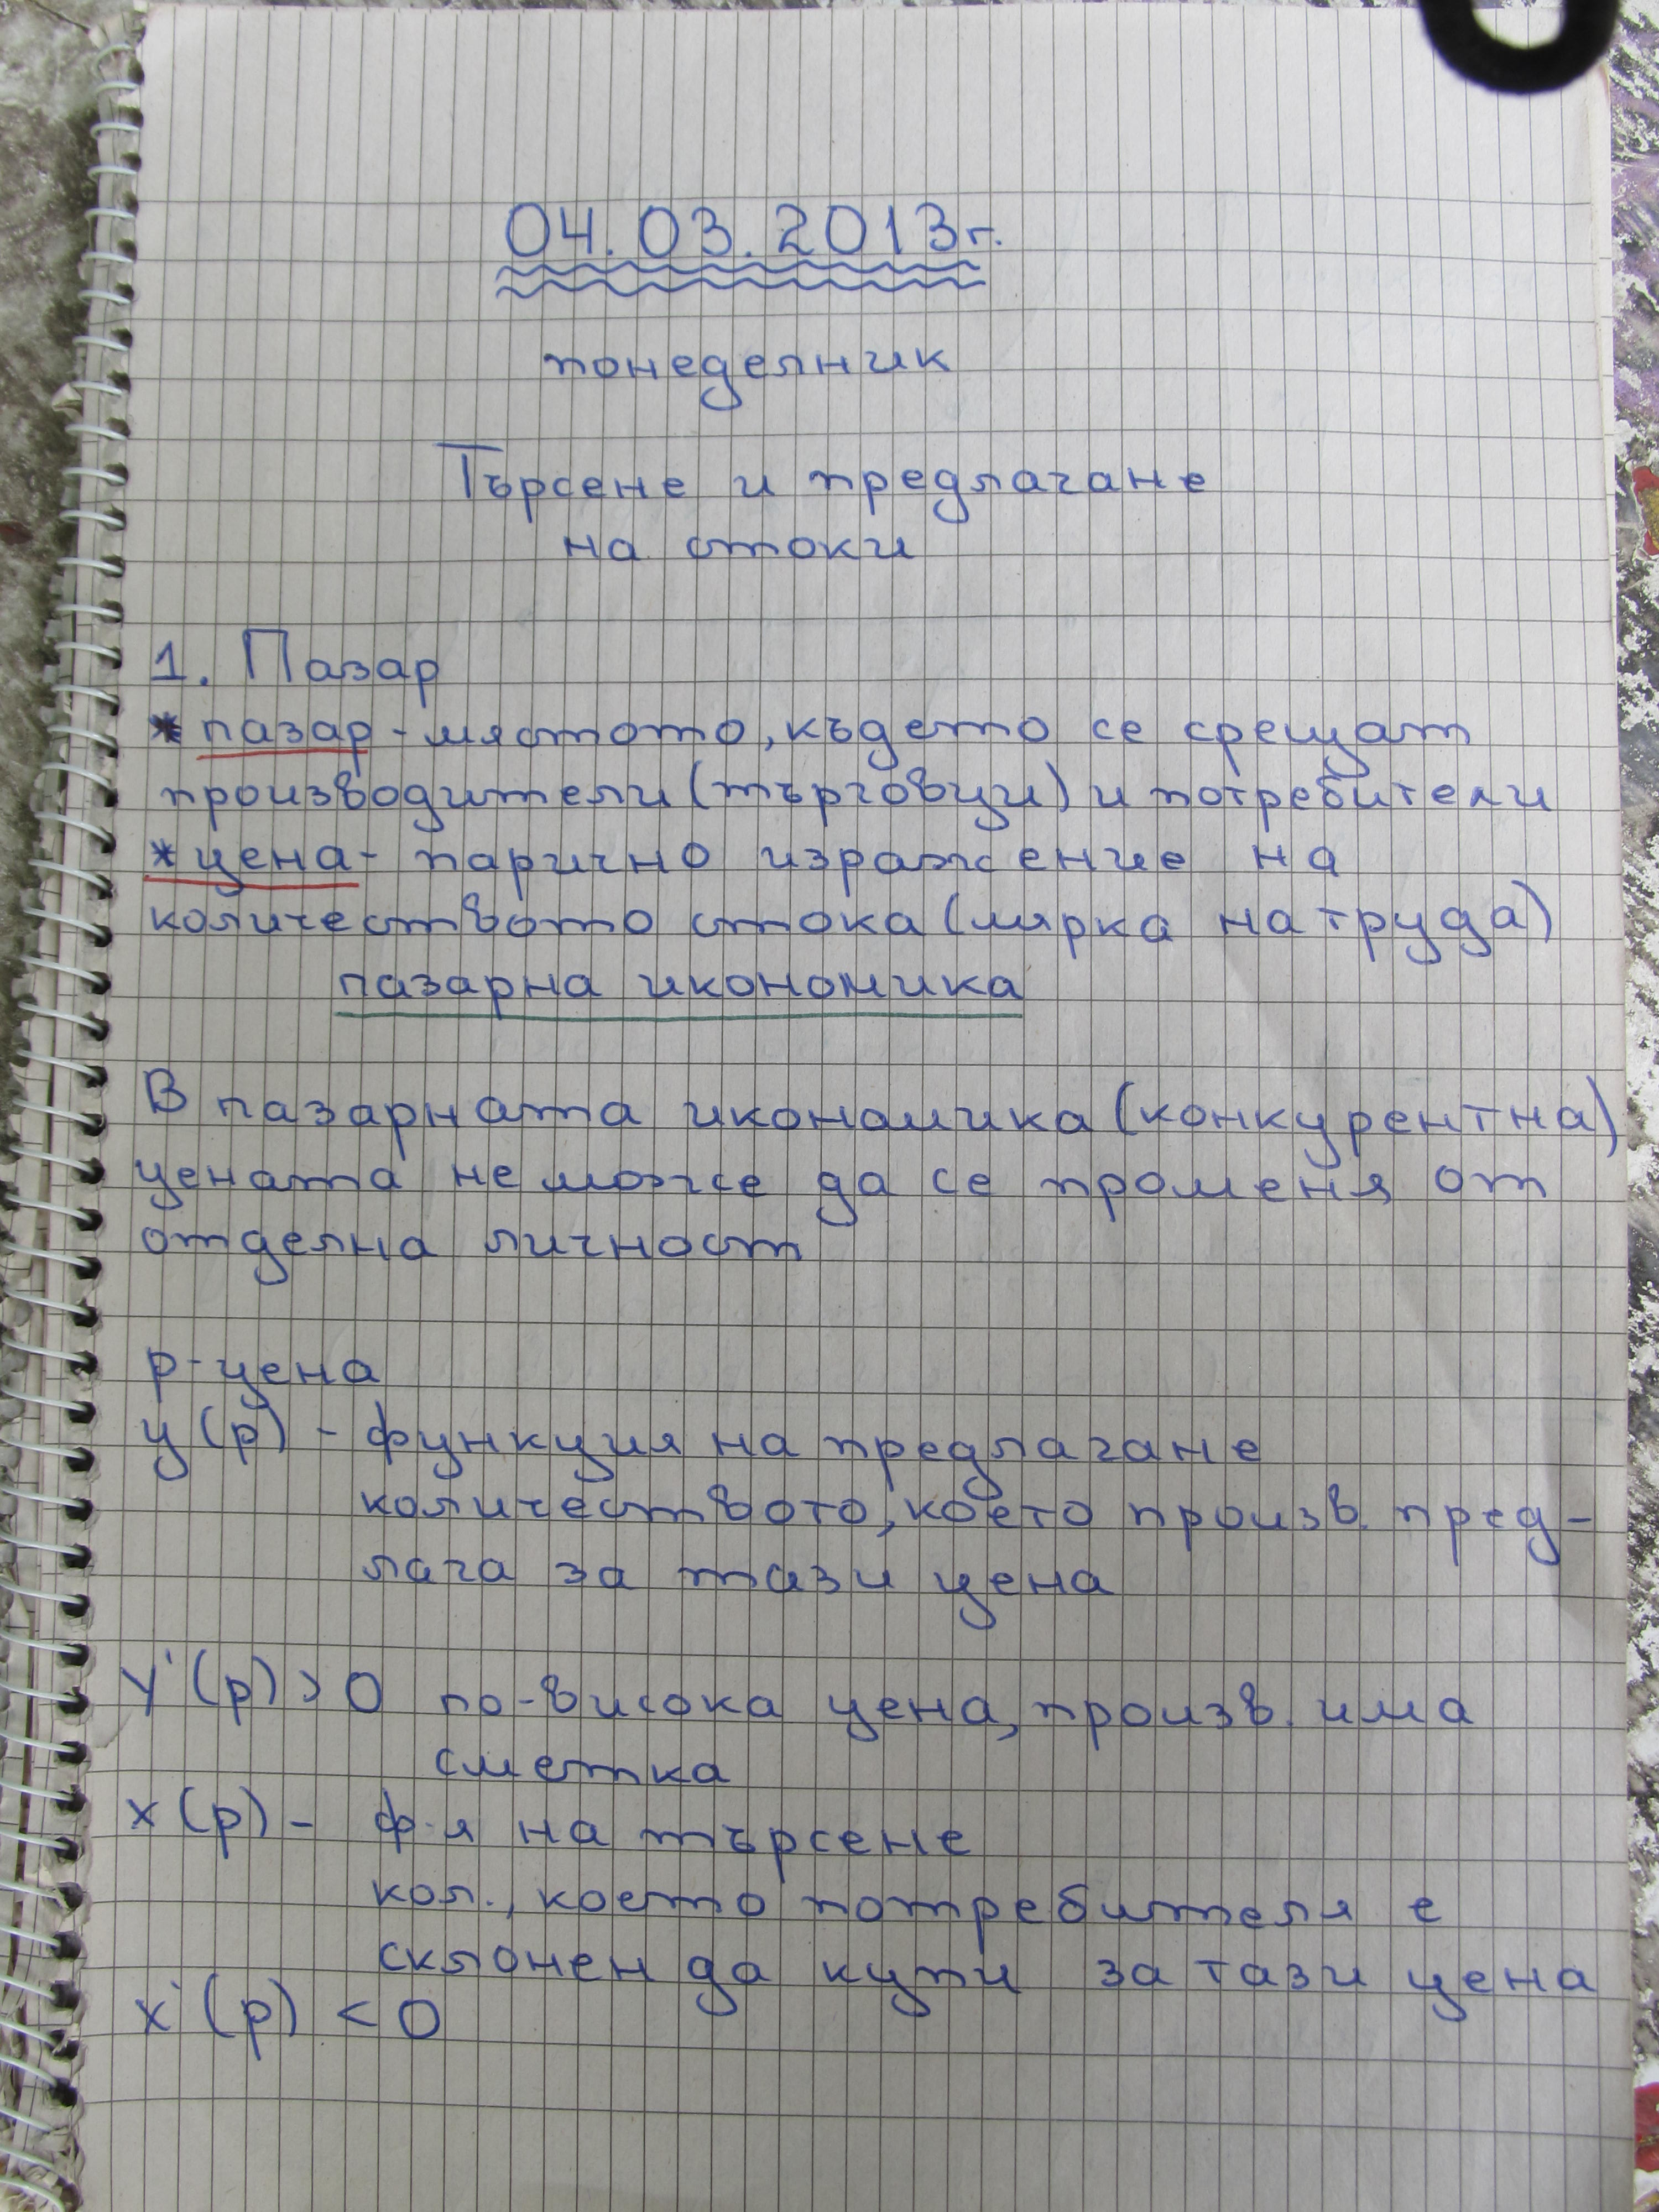 04.03.2013г.
понеделник
Търсене и предлагане
на стоки
1. Пазар
* пазар - мястото, където се срещат
производители (търговци) и потребители
* цена - парично изражение на
количеството стока (мярка на труда)
пазарна икономика
В пазарната икономика (конкурентна)
цената не може да се променя от
отделна личност
p - цена
y(p) - функция на предлагане
количеството, което произв. пред-
лага за тази цена
y'(p) > 0 по-висока цена, произв. има
сметка
x(p) - ф-я на търсене
кол., което потребителя е
склонен да купи за тази цена
x'(p) < 0